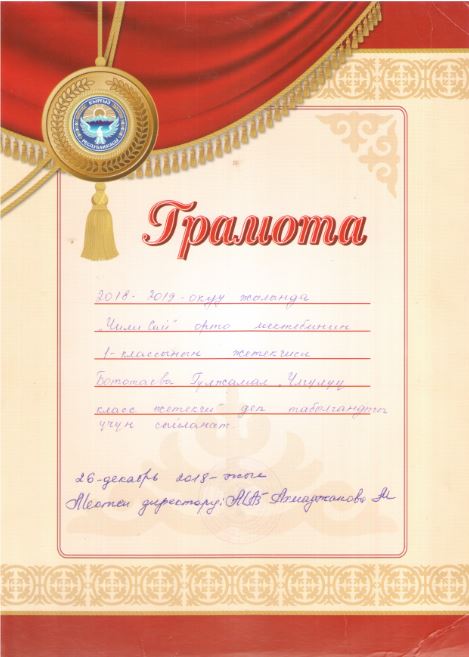 КЫРГЫЗ
РЕСПУБЛИКАСЫ
Грамота
2018-2019-окуу жылында
"Чили Сай" орто мектебинин
1-классынын жетекчиси
Бототаева Гулжамал "Үлгүлүү
класс жетекчи" деп табылгандыгы
үчүн сыйланат.
26-декабрь 2018-жыл
Мектеп директору: Ахмаджанова М